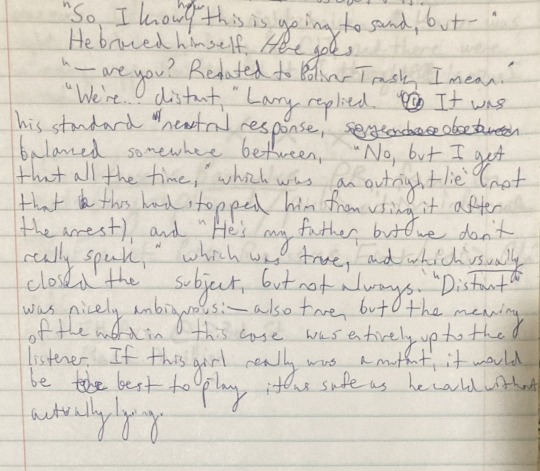 "So, I know how this is going to sound, but—"
He braced himself. Here goes
"—are you? Related to Bolivar Trask, I mean."
"We're... distant," Larry replied. It was
his standard "neutral" response,
balanced somewhere between, "No, but I get
that all the time," which was an outright lie (not
that this had stopped him from using it after
the arrest), and "He's my father, but we don't
really speak," which was true, and which usually
closed the subject, but not always. "Distant"
was nicely ambiguous:— also true, but the meaning
of the word in this case was entirely up to the
listener. If this girl really was a mutant, it would
be best to play it as safe as he could without
actually lying.